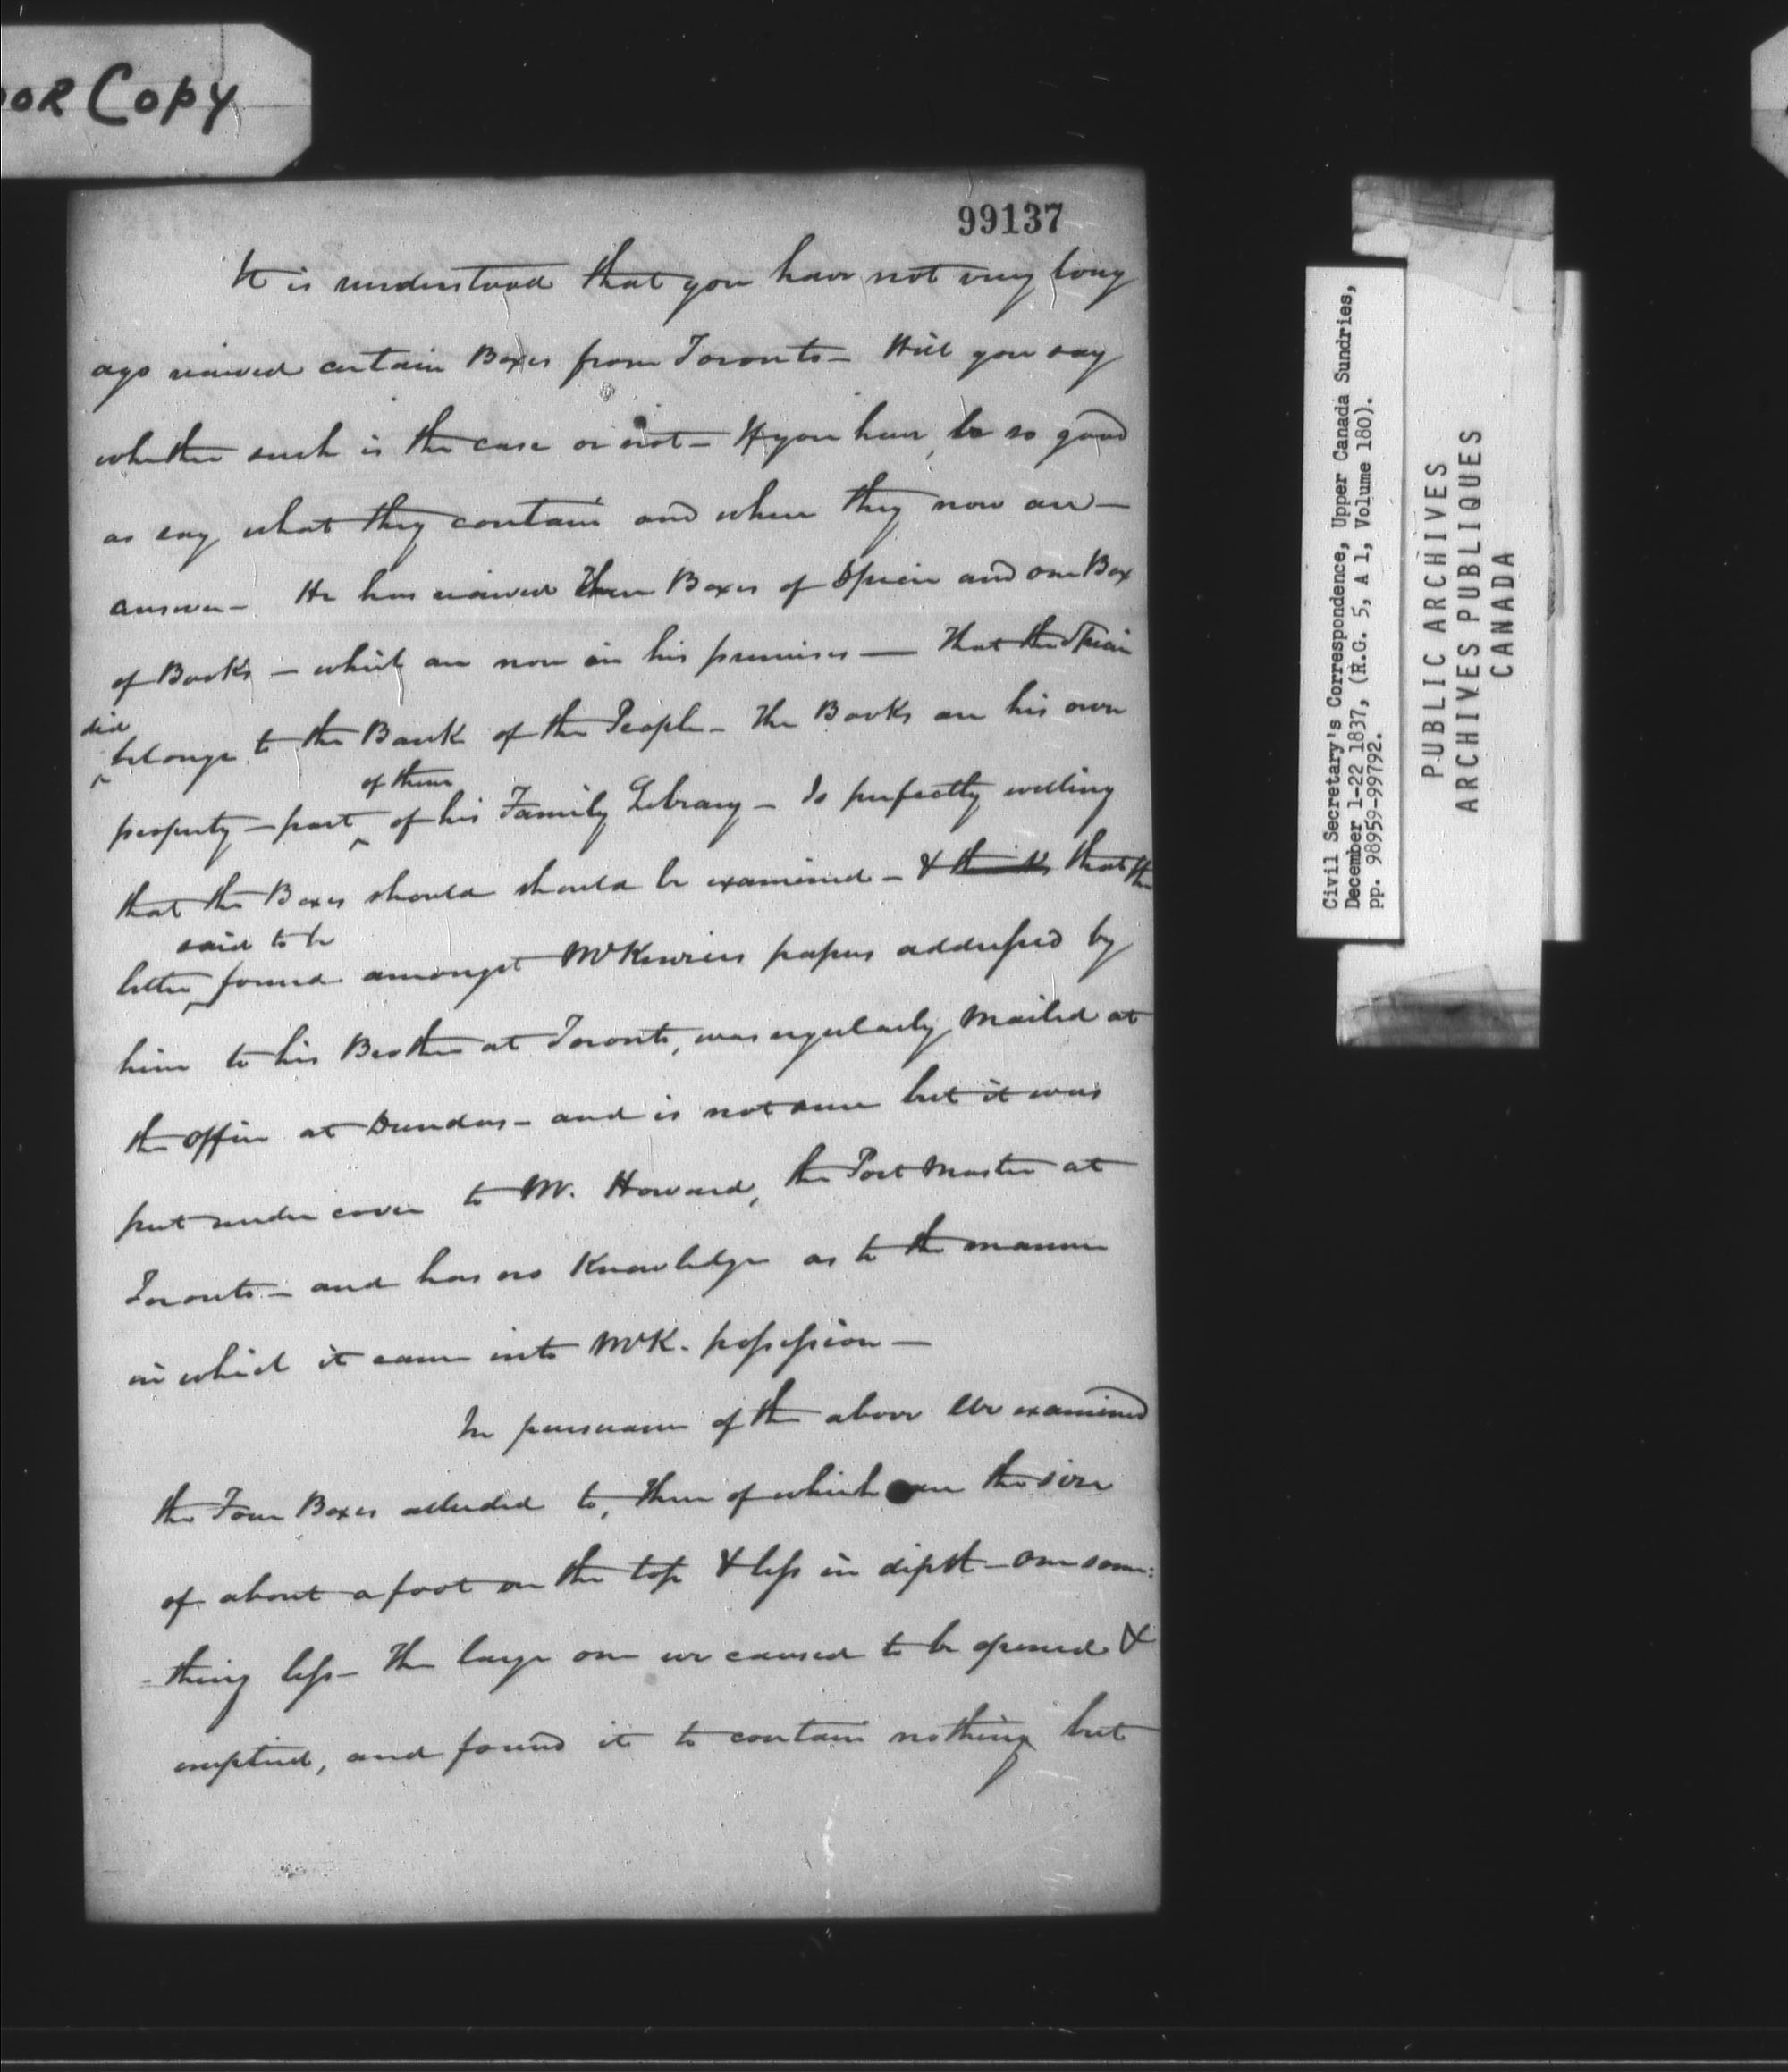 OOR COPY
99137
It is understood that you have not very long
ago received certain Boxes from Toronto - Will you say
whether such is the case or not - If you have, be so good
as say what they contain and where they now are -
answer - He has received Three Boxes of Specie and one Box
of Books - which are now in his premises - That the Specie
did
belonge to the Bank of the People - The Books are his own
of them
property - part of his Family Library - Is perfectly willing
that the Boxes should should be examined - & thinks that the
said to be
letter found amongst McKenzies papers addressed by
him to his Brother at Toronto, was regularly mailed at
the office at Dundas - and is not sure but it was
put under cover to Mr. Howard, the Post Master at
Toronto - and has no Knowledge as to the manner
in which it came into McK. possession -
In pursuance of the above We examined
the Four Boxes alluded to, three of which are the size
of about a foot on the top & less in depth - one some:
-thing less - The large one we caused to be opened &
emptied, and found it to contain nothing but
Civil Secretary's Correspondence, Upper Canada Sundries,
December 1-22 1837, (R.G. 5, A 1, Volume 180).
pp. 98959-99792.
PUBLIC ARCHIVES
ARCHIVES PUBLIQUES
CANADA